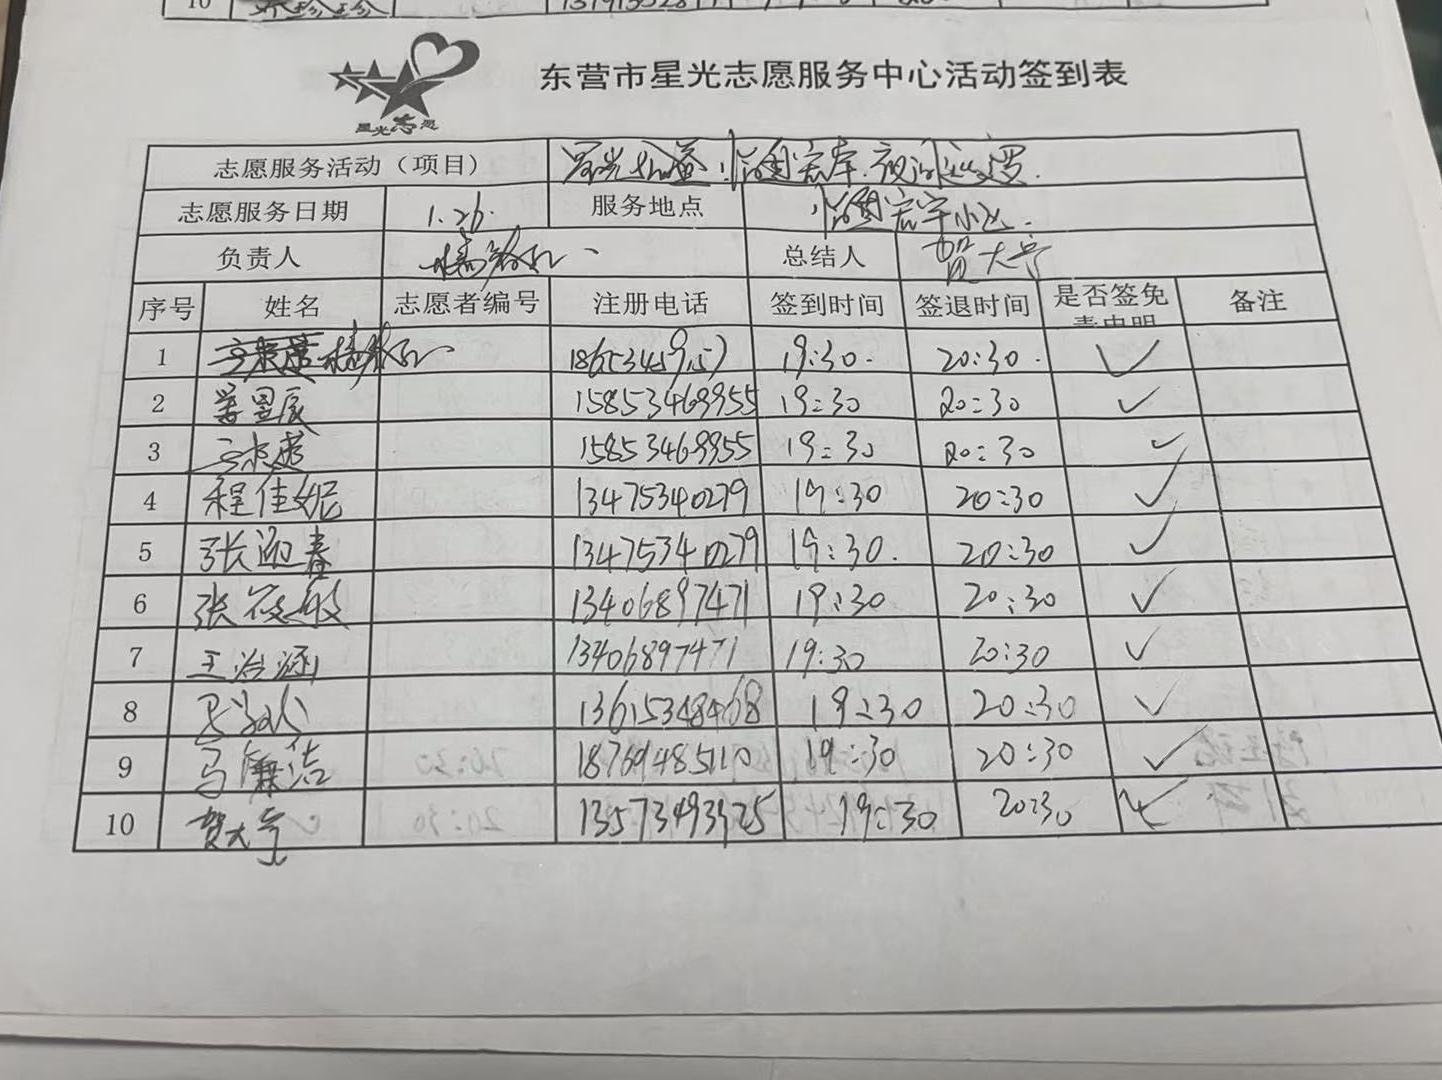 10
东营市星光志愿服务中心活动签到表
星光志愿
志愿服务活动（项目） 星光公益 怡园宏宇 夜间巡逻.
志愿服务日期 1.26. 服务地点 怡园宏宇小区.
负责人 总结人 贺大亭
序号 姓名 志愿者编号 注册电话 签到时间 签退时间 是否签免责申明 备注
1 19:30. 20:30.
2 姜星辰 15853469955 19:30 20:30
3 15853469955 19:30 20:30
4 程佳妮 13475340279 19:30 20:30
5 张迎春 13475340279 19:30. 20:30
6 张筱敏 13406897471 19:30 20:30
7 王治涵 13406897471 19:30 20:30
8 13615348468 19:30 20:30
9 马廉洁 18769485110 19:30 20:30
10 贺大亭 19:30 20:30